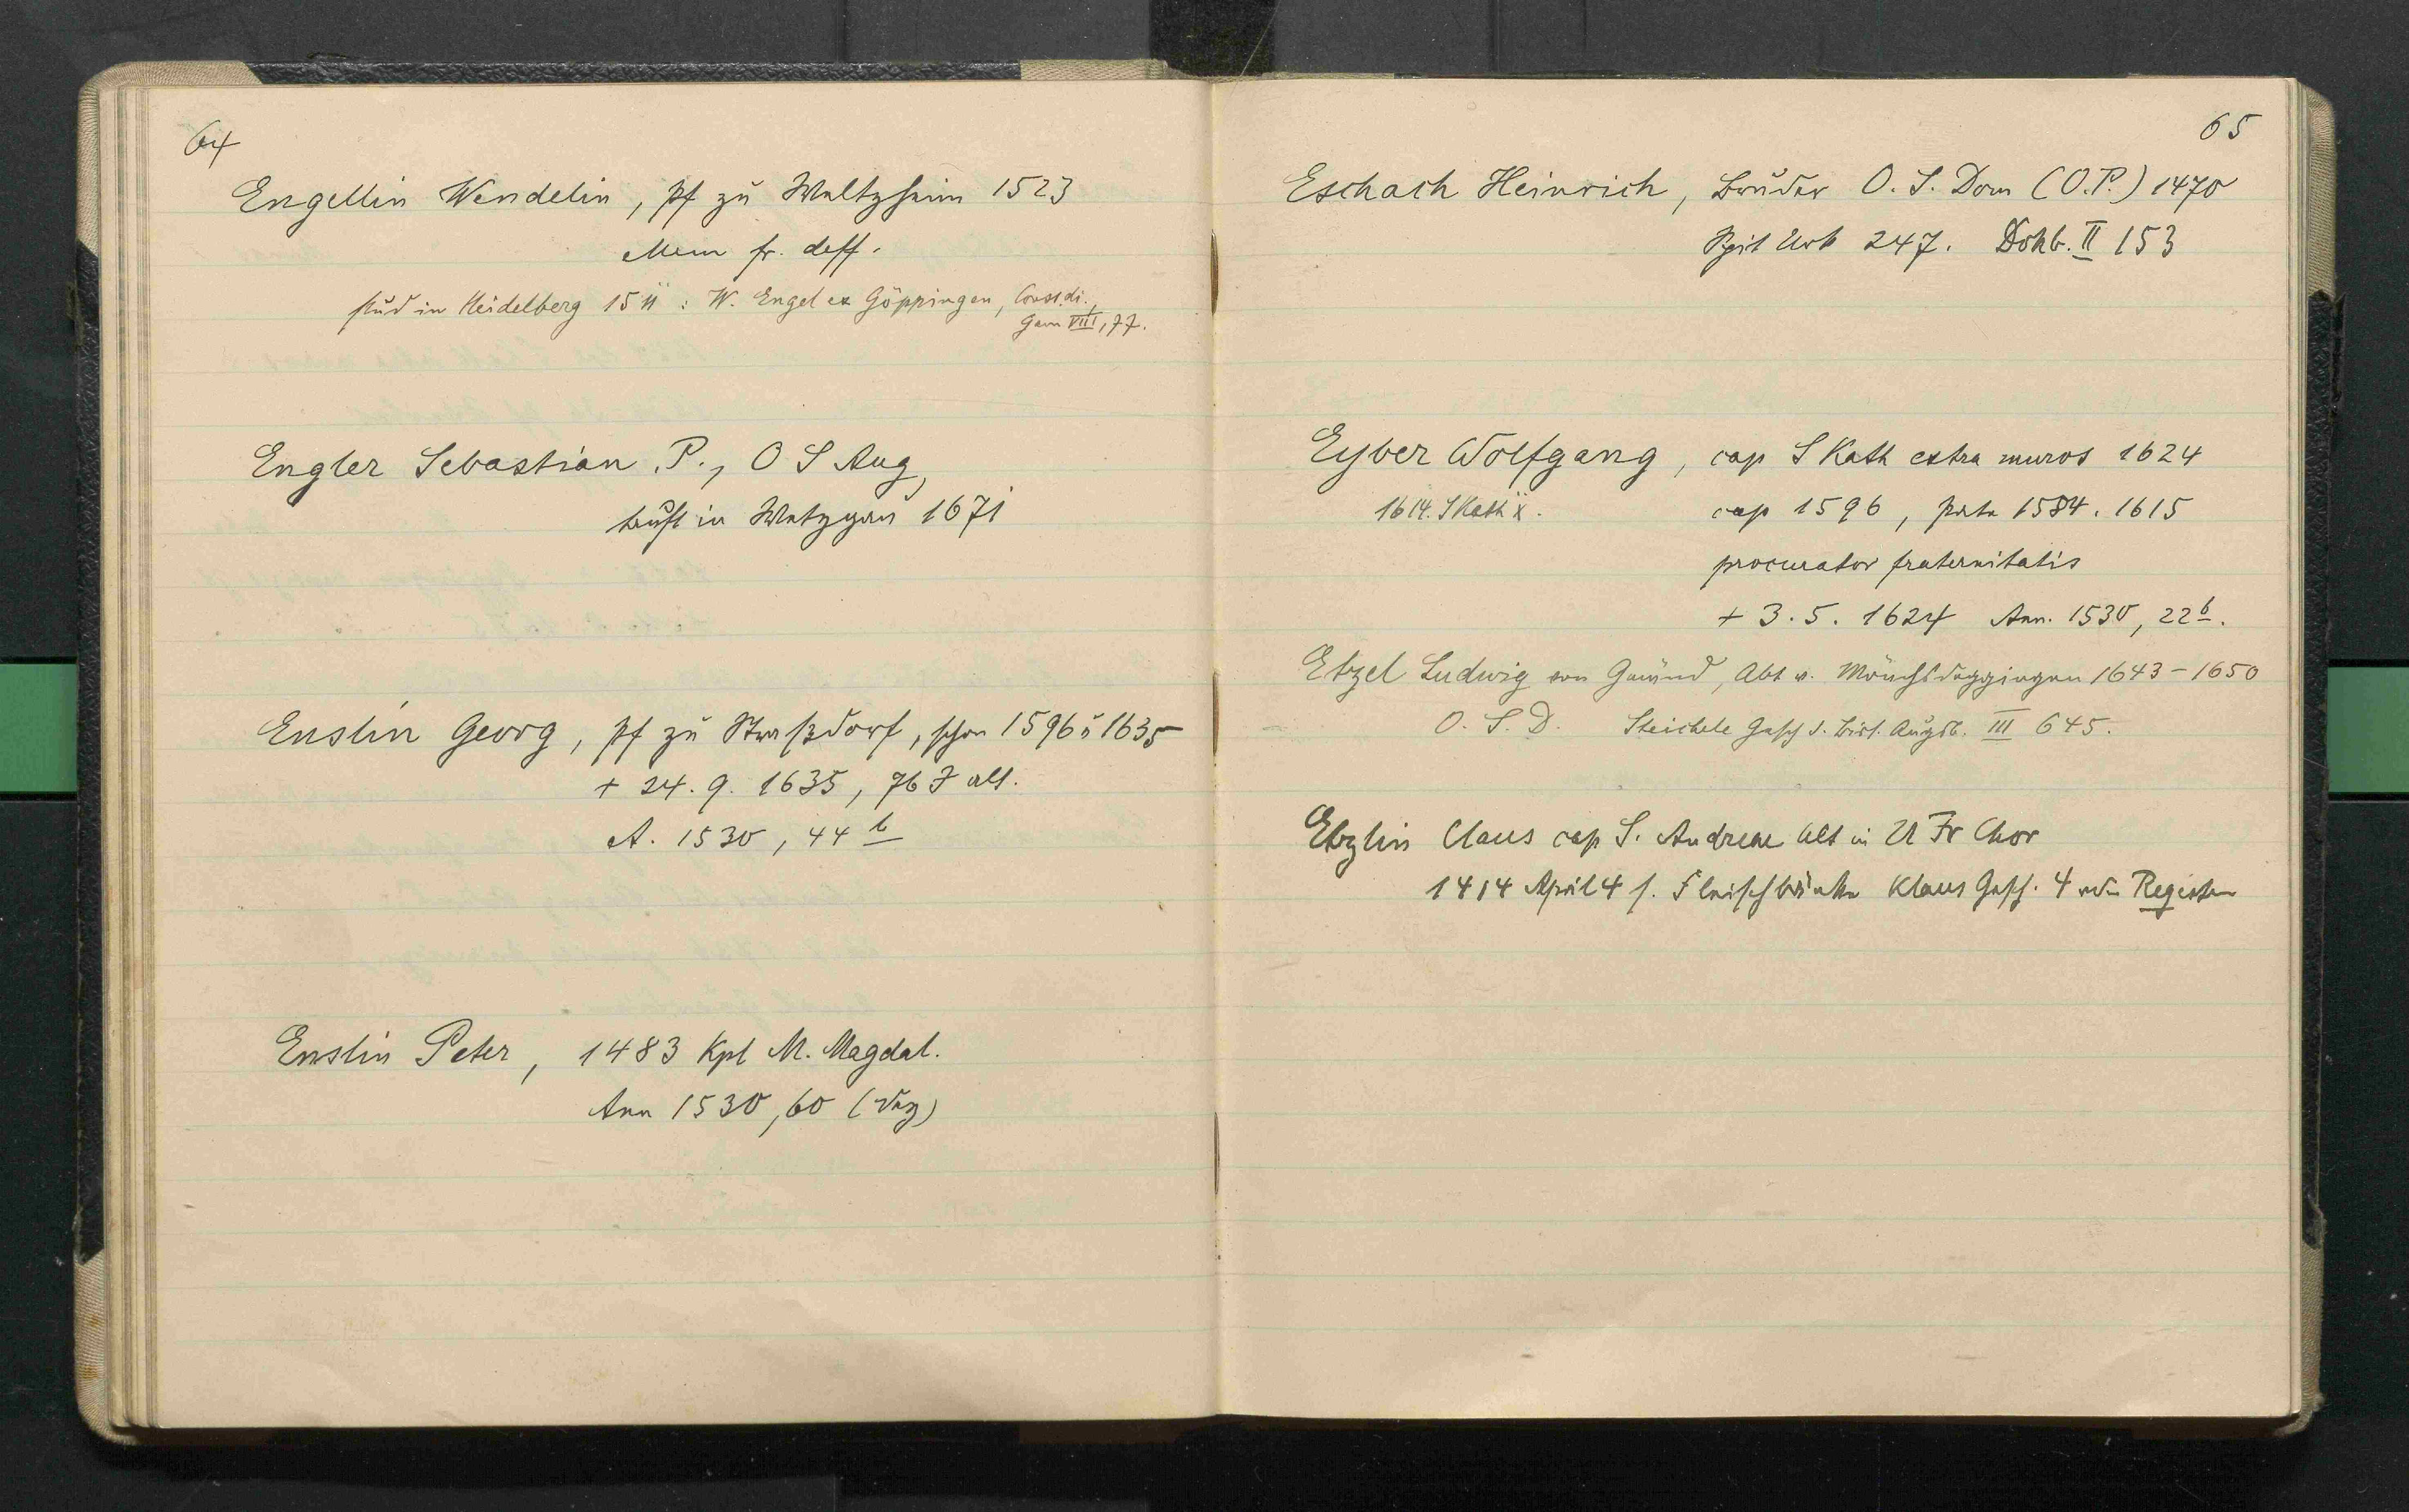 64
Engellin Wendelin, Pf zu Waltzheim 1523
Mem fr. deff.
stud in Heidelberg 1511 : W. Engel ex Göppingen, Const. di.,
Gem VIII, 77.
Engler Sebastian, P., O S Aug,
tauft in Wetzgau 1671
Enslin Georg, Pf zu Straßdorf, schon 1596 u 1635
+ 24. 9. 1635, 76 J alt.
A. 1530, 44 b
Enslin Peter, 1483 Kpl M. Magdal.
Ann 1530, 60 (Deg)
65
Eschach Heinrich, Bruder O. S. Dom (O.P.) 1470
Spit Urk 247. Dökb. II 153
Eyber Wolfgang, cap S Kath extra muros 1624
1614. S Kath x. cap 1596, 1584. 1615
procurator fraternitatis
+ 3. 5. 1624 Ann. 1530, 22 b.
Etzel Ludwig von Gmünd, Abt v. Mönchsdeggingen 1643 - 1650
O. S. B. Steichele Gesch d. Bist. Augsb. III 645.
Etzlin Claus cap S. Andreae Alt in U Fr Chor
1414 April 4 s. Fleischbänke Klaus Gesch. 4 Register